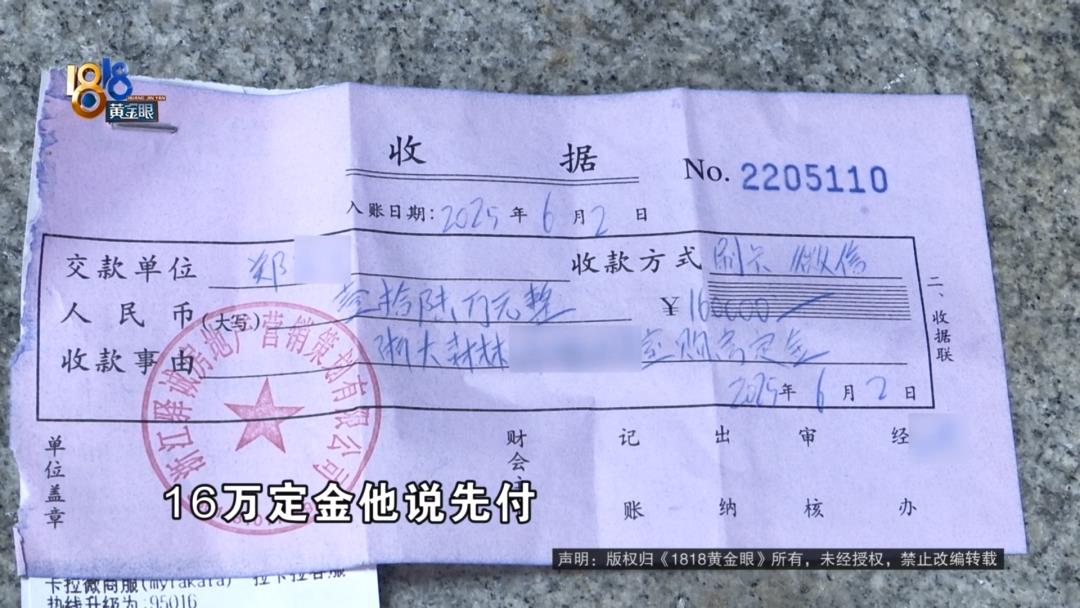 1818
黄金眼
收 据
No. 2205110
入账日期:2025年6月2日
交款单位 郑 收款方式 刷卡 微信
人民币(大写) 壹拾陆万元整 ¥160000
收款事由 浙大森林 室购房定金
2025年6月2日
二、收据联
单位盖章
财会
记账
出纳
审核
经办
浙江驿诚房地产营销策划有限公司
16万定金他说先付
声明：版权归《1818黄金眼》所有，未经授权，禁止改编转载
卡拉微商服(mylakala) 拉卡拉客服
热线升级为:95016